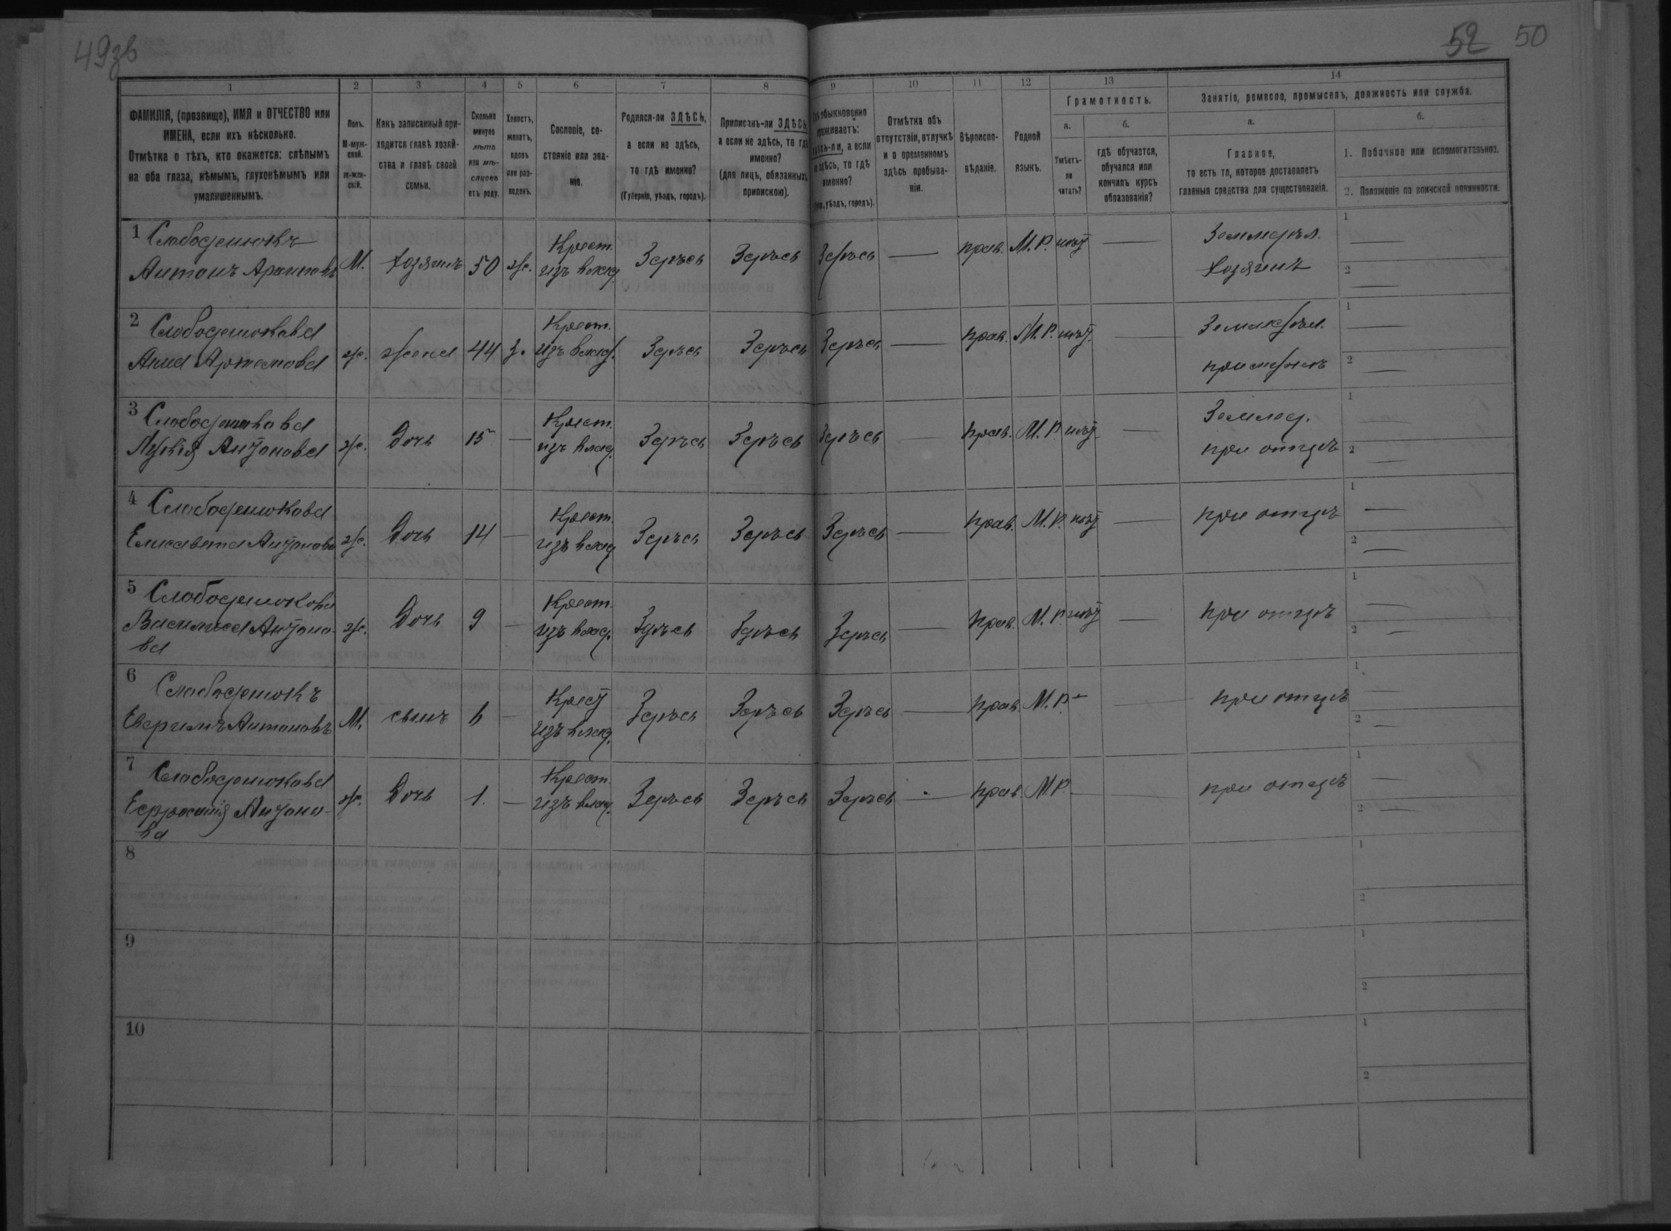 49зв
52 50
1 2 3 4 5 6 7 8 9 10 11 12 13 14
ФАМИЛІЯ, (прозвище), ИМЯ и ОТЧЕСТВО или
ИМЕНА, если ихъ нѣсколько.
Отмѣтка о тѣхъ, кто окажется: слѣпымъ
на оба глаза, нѣмымъ, глухонѣмымъ или
умалишеннымъ.
Полъ.
М-муж-
ской.
Ж-жен-
скій.
Какъ записанный при-
ходится главѣ хозяй-
ства и главѣ своей
семьи.
Сколько
минуло
лѣтъ
или мѣ-
сяцевъ
отъ роду.
Холостъ,
женатъ,
вдовъ
или раз-
веденъ.
Сословіе, со-
стояніе или зва-
ніе.
Родился-ли ЗДѢСЬ,
а если не здѣсь,
то гдѣ именно?
(Губернія, уѣздъ, городъ).
Приписанъ-ли ЗДѢСЬ,
а если не здѣсь, то гдѣ
именно?
(для лицъ, обязанныхъ
припискою).
обыкновенно
проживаетъ:
здѣсь-ли, а если
не здѣсь, то гдѣ
именно?
уѣздъ, городъ).
Отмѣтка объ
отсутствіи, отлучкѣ
и о временномъ
здѣсь пребыва-
ніи.
Вѣроиспо-
вѣданіе.
Родной
языкъ.
Грамотность.
а.
Умѣетъ-
ли
читать?
б.
гдѣ обучается,
обучался или
кончилъ курсъ
образованія?
Занятіе, ремесло, промыселъ, должность или служба.
а.
Главное,
то есть то, которое доставляетъ
главныя средства для существованія.
б.
1. Побочное или вспомогательное.
2. Положеніе по воинской повинности.
1 Слободенюкъ
Антонъ М. хозяинъ 50 ж. Крест. изъ влад. Здѣсь Здѣсь Здѣсь — прав. М.Р. нѣт — Земледѣл. хозяинъ 1 — 2 —
2 Слободенюкова
Анна Артемова ж. жена 44 з. Крест. изъ влад. Здѣсь Здѣсь Здѣсь — прав. М.Р. нѣт. — Земледѣл. при мужѣ 1 — 2 —
3 Слободенюкова
Антонова ж. Дочь 15 — Крест. изъ влад. Здѣсь Здѣсь Здѣсь — прав. М.Р. нѣт — Землед. при отцѣ 1 — 2 —
4 Слободенюкова
Елисавета Антонова ж. Дочь 14 — Крест. изъ влад. Здѣсь Здѣсь Здѣсь — прав. М.Р. нѣт — при отцѣ 1 — 2 —
5 Слободенюкова
Василиса Антоно-
ва ж. Дочь 9 — Крест. изъ влад. Здѣсь Здѣсь Здѣсь — прав. М.Р. нѣт — при отцѣ 1 — 2 —
6 Слободенюкъ
Антоновъ М. сынъ 6 — Крест изъ влад. Здѣсь Здѣсь Здѣсь — прав. М.Р. — при отцѣ 1 — 2 —
7 Слободенюкова
Антоно-
ва ж. Дочь 1. — Крест. изъ влад. Здѣсь Здѣсь Здѣсь — прав М.Р. — при отцѣ 1 — 2 —
8 1 2
9 1 2
10 1 2